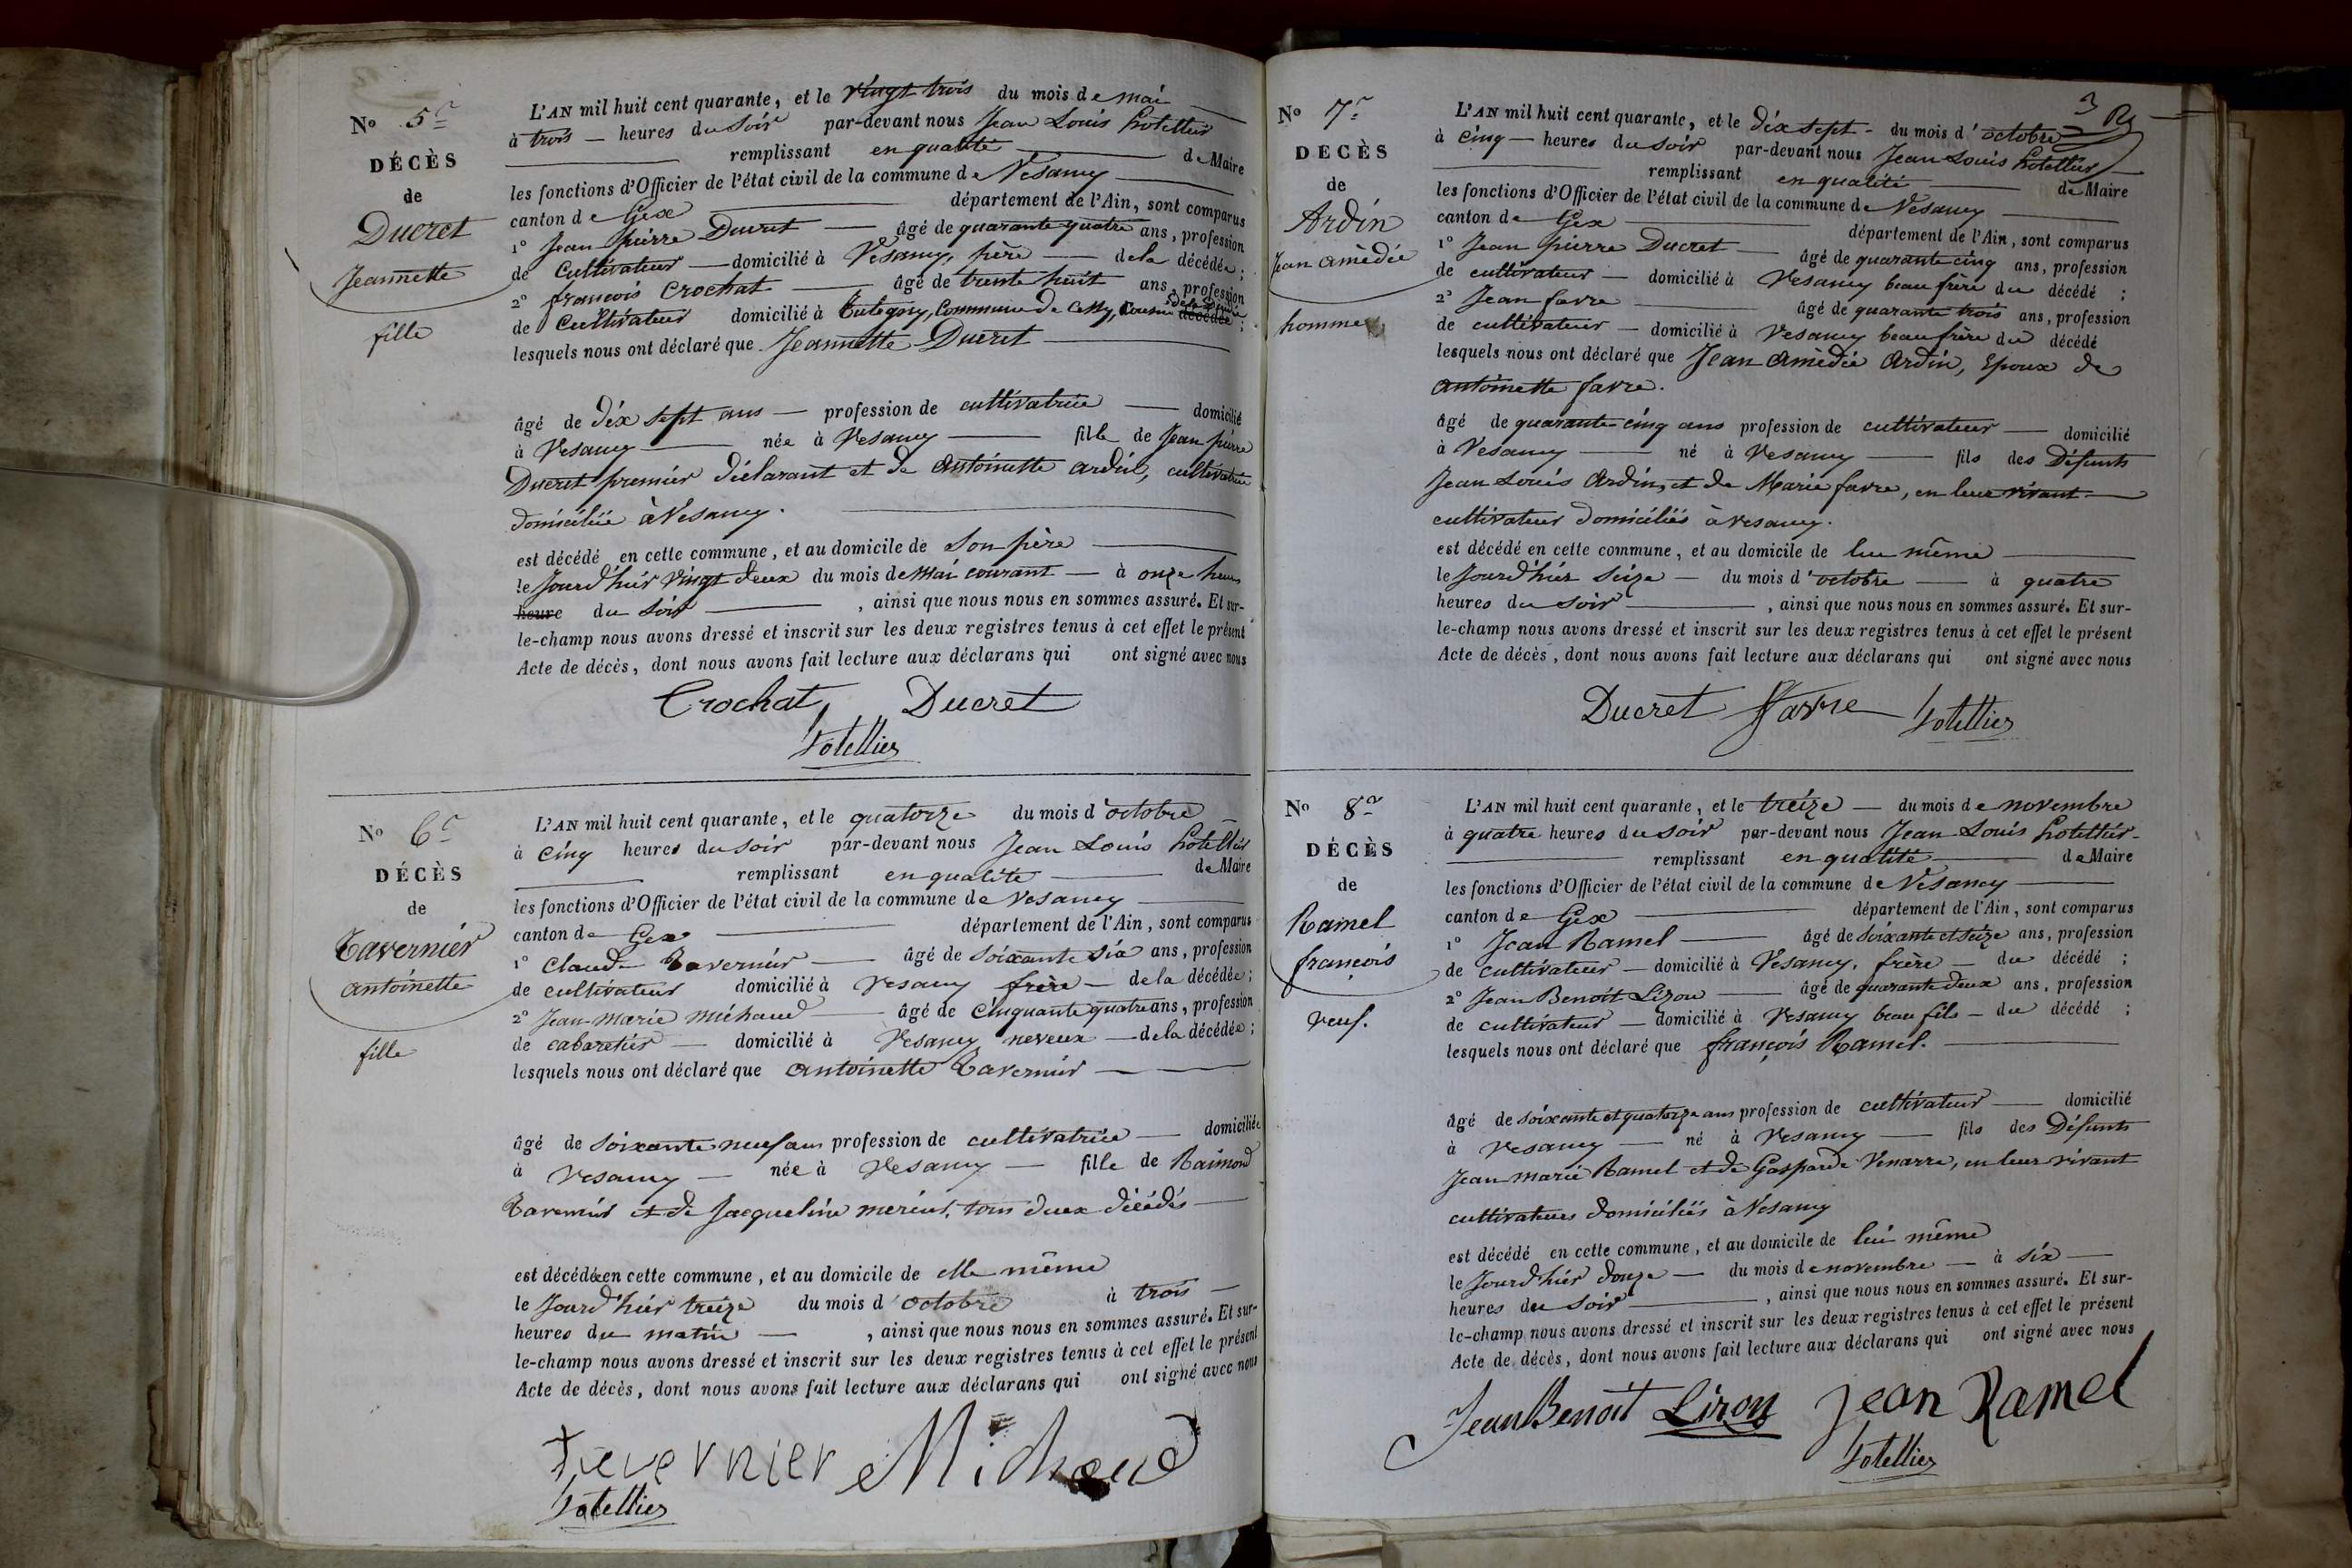 No 5e
DÉCÈS
de
Ducret
Jeannette
fille
L'AN mil huit cent quarante, et le vingt trois du mois de mai
à trois heures du soir par-devant nous Jean Louis Hotellier
remplissant en qualité de Maire
les fonctions d'Officier de l'état civil de la commune de Vesancy
canton de Gex département de l'Ain, sont comparus
1° Jean pierre Ducret âgé de quarante quatre ans, profession
de Cultivateur domicilié à Vesancy, père de la décédée ;
2° françois Crochat âgé de trente huit ans, profession
de Cultivateur domicilié à Tutegny, Commune de Cessy, Cousin décédée ;
lesquels nous ont déclaré que Jeannette Ducret
âgé de dix sept ans profession de cultivatrice domicilié
à Vesancy née à Vesancy fille de Jean pierre
Ducret premier déclarant et de antoinette ardin, cultivatrice
domiciliée à Vesancy.
est décédé en cette commune, et au domicile de Son père
le Jourd'hier vingt deux du mois de mai courant à onze heures
heure du soir , ainsi que nous nous en sommes assuré. Et sur-
le-champ nous avons dressé et inscrit sur les deux registres tenus à cet effet le présent
Acte de décès, dont nous avons fait lecture aux déclarans qui ont signé avec nous
Crochat Ducret
hotellier
No 6e
DÉCÈS
de
Tavernier
antoinette
fille
L'AN mil huit cent quarante, et le quatorze du mois d'octobre
à cinq heures du soir par-devant nous Jean Louis hotellier
remplissant en qualité de Maire
les fonctions d'Officier de l'état civil de la commune de Vesancy
canton de Gex département de l'Ain, sont comparus
1° Claude Tavernier âgé de soixante six ans, profession
de cultivateur domicilié à Vesancy frère de la décédée ;
2° Jean-marie michaud âgé de cinquante quatre ans, profession
de cabaretier domicilié à Vesancy neveux de la décédée ;
lesquels nous ont déclaré que antoinette Tavernier
âgé de soixante neuf ans profession de cultivatrice domiciliée
à Vesancy née à Vesancy fille de Raimond
Tavernier et de Jacqueline tous deux décédés
est décédée en cette commune, et au domicile de elle même
le Jourd'hier treize du mois d'octobre à trois
heures du matin , ainsi que nous nous en sommes assuré. Et sur-
le-champ nous avons dressé et inscrit sur les deux registres tenus à cet effet le présent
Acte de décès, dont nous avons fait lecture aux déclarans qui ont signé avec nous
tavernier Michaud
hotellier
3
No 7e
DÉCÈS
de
Ardin
Jean amédée
homme
L'AN mil huit cent quarante, et le dix sept du mois d'octobre
à cinq heures du soir par-devant nous Jean Louis hotellier
remplissant en qualité de Maire
les fonctions d'Officier de l'état civil de la commune de Vesancy
canton de Gex département de l'Ain, sont comparus
1° Jean pierre Ducret âgé de quarante cinq ans, profession
de cultivateur domicilié à Vesancy beau frère du décédé ;
2° Jean favre âgé de quarante trois ans, profession
de cultivateur domicilié à Vesancy beau frère du décédé
lesquels nous ont déclaré que Jean Amédée Ardin, Epoux de
antoinette favre.
âgé de quarante cinq ans profession de cultivateur domicilié
à Vesancy né à Vesancy fils des Défunts
Jean Louis Ardin, et de Marie favre, en leur vivant
cultivateur domiciliés à Vesancy.
est décédé en cette commune, et au domicile de lui même
le Jourd'hier seize du mois d'octobre à quatre
heures du soir , ainsi que nous nous en sommes assuré. Et sur-
le-champ nous avons dressé et inscrit sur les deux registres tenus à cet effet le présent
Acte de décès, dont nous avons fait lecture aux déclarans qui ont signé avec nous
Ducret Favre hotellier
No 8e
DÉCÈS
de
Ramel
françois
veuf.
L'AN mil huit cent quarante, et le treize du mois de novembre
à quatre heures du soir par-devant nous Jean Louis hotellier
remplissant en qualité de Maire
les fonctions d'Officier de l'état civil de la commune de Vesancy
canton de Gex département de l'Ain, sont comparus
1° Jean Ramel âgé de soixante et seize ans, profession
de cultivateur domicilié à Vesancy, frère du décédé ;
2° Jean Benoit Lizon âgé de quarante deux ans, profession
de cultivateur domicilié à Vesancy beau fils du décédé ;
lesquels nous ont déclaré que françois Ramel.
âgé de soixante et quatorze ans profession de cultivateur domicilié
à Vesancy né à Vesancy fils des Défunts
Jean marie Ramel et de Gasparde Venarre, en leur vivant
cultivateurs domiciliés à Vesancy
est décédé en cette commune, et au domicile de lui même
le Jourd'hier douze du mois de novembre à six
heures du soir , ainsi que nous nous en sommes assuré. Et sur-
le-champ nous avons dressé et inscrit sur les deux registres tenus à cet effet le présent
Acte de décès, dont nous avons fait lecture aux déclarans qui ont signé avec nous
Jean Benoit Lizon Jean Ramel
hotellier